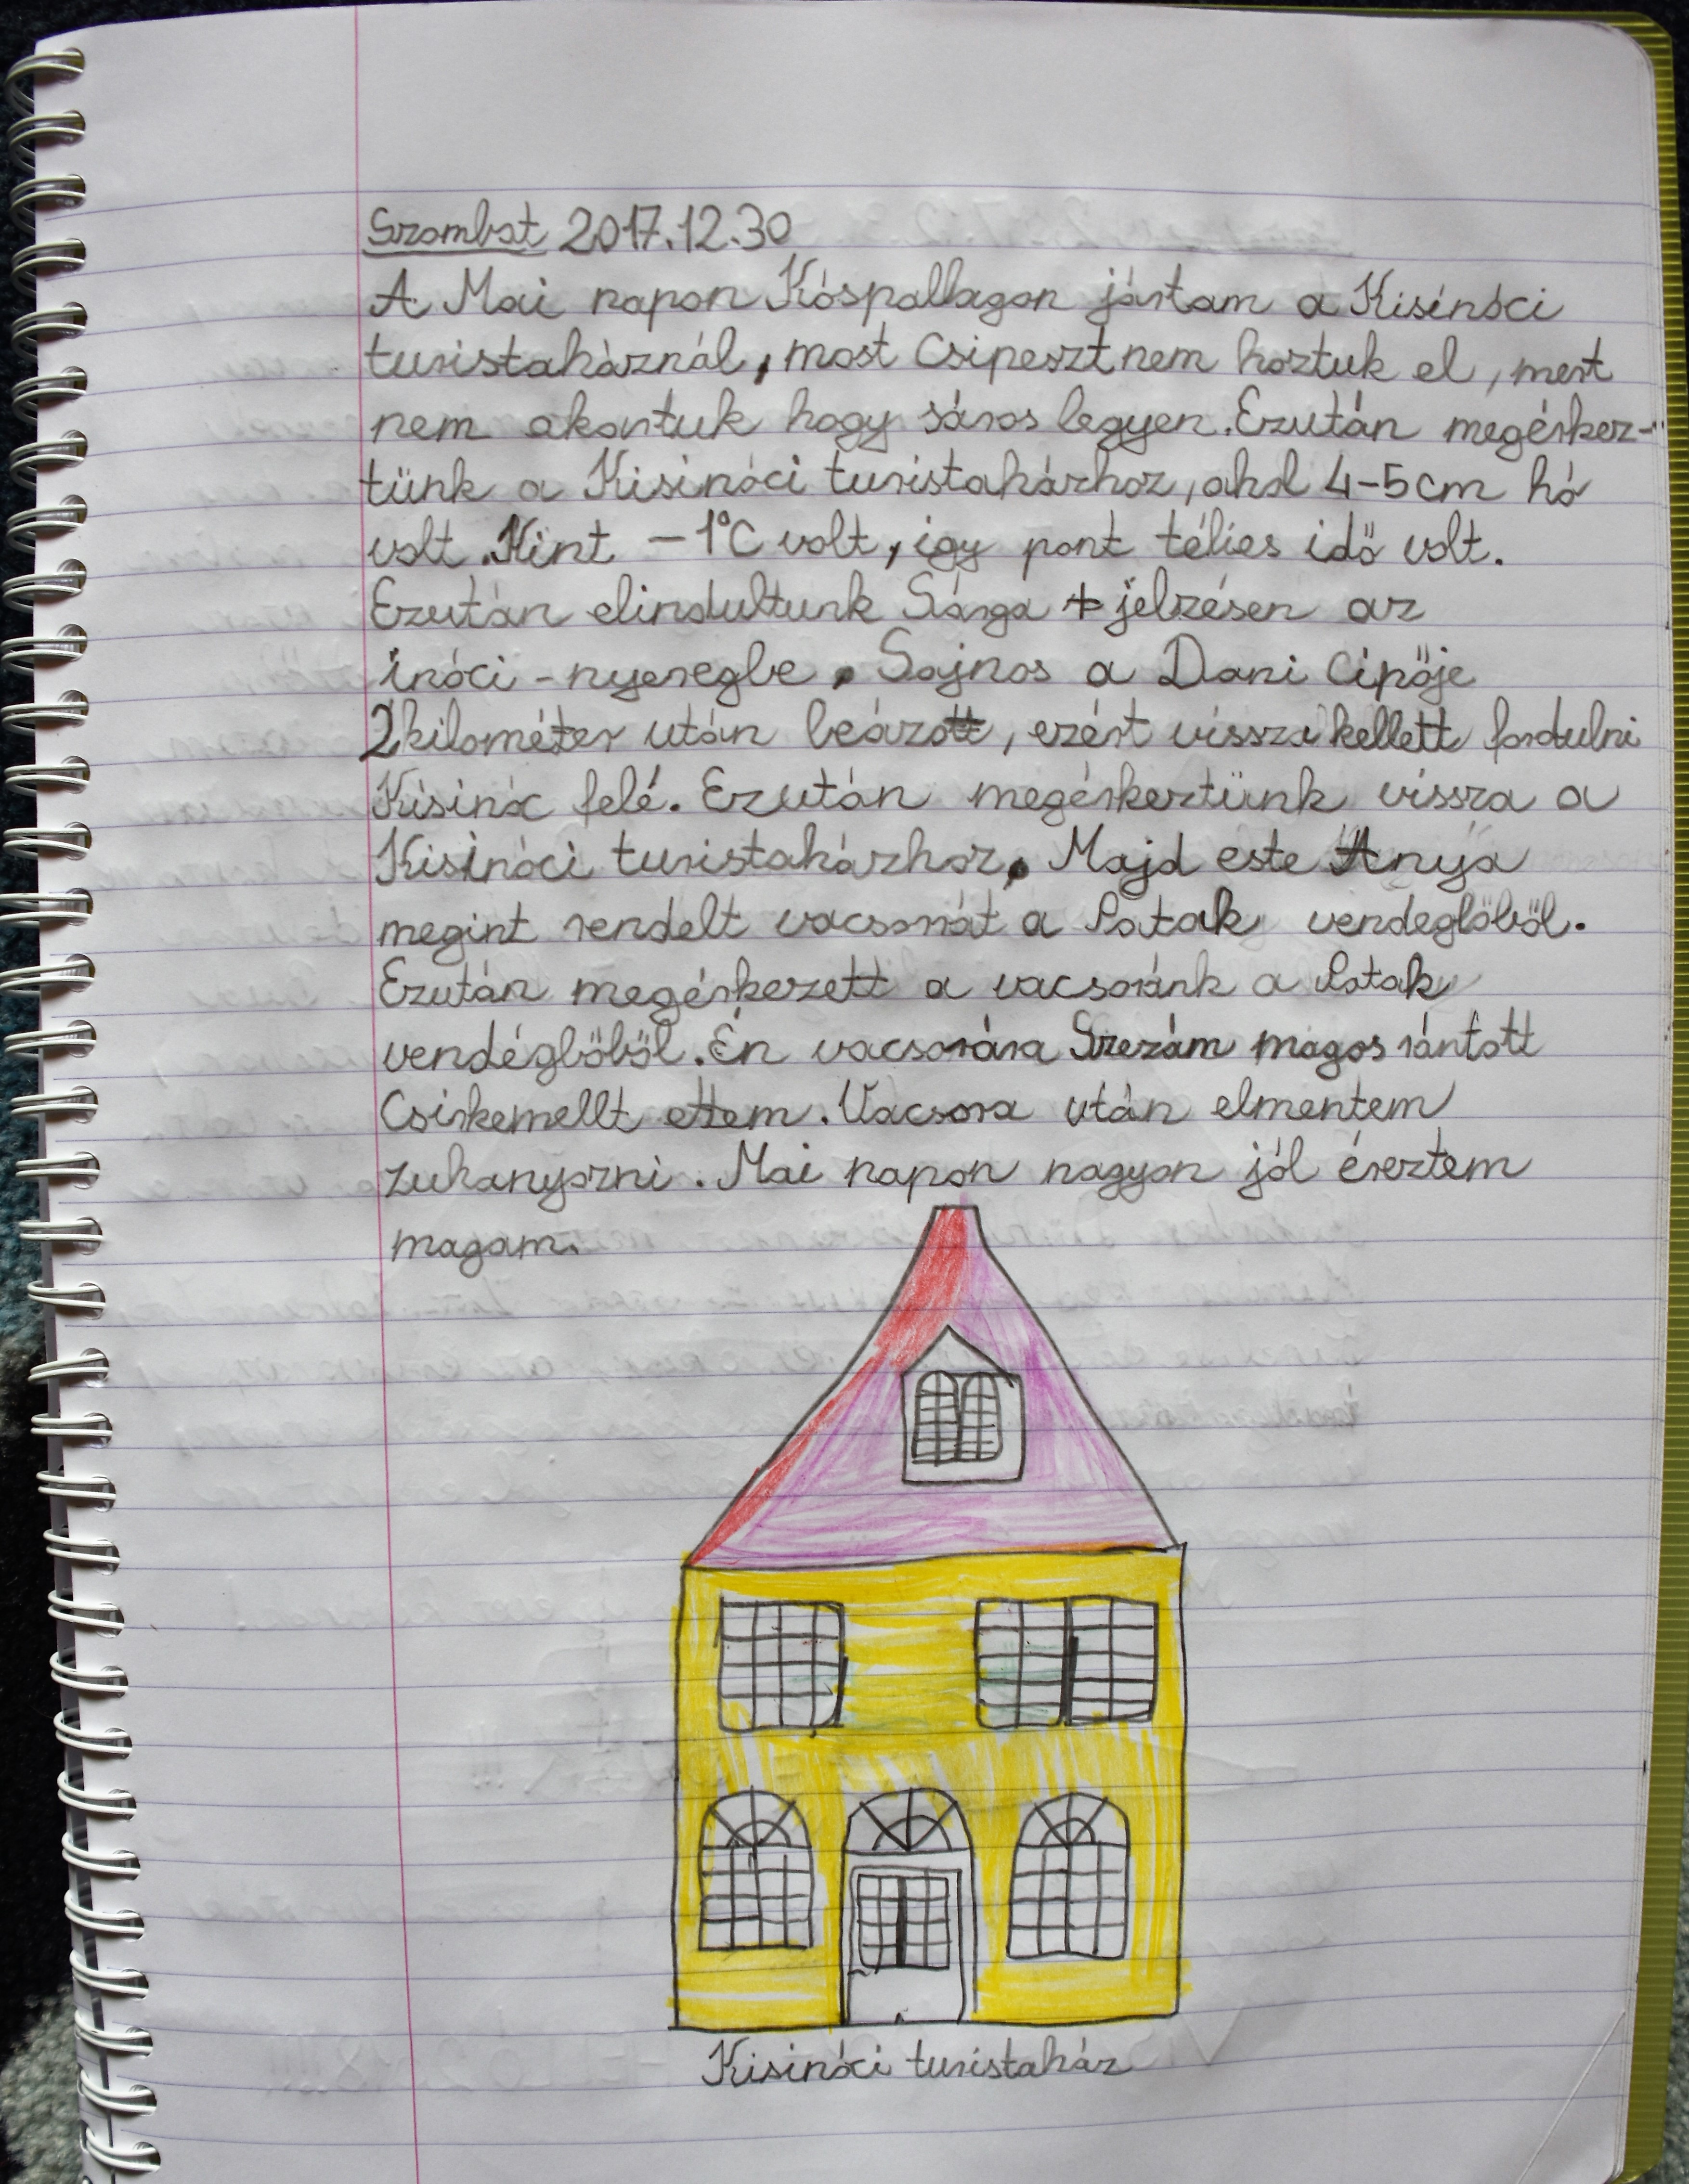 Szombat 2017.12.30
A Mai napon Kóspallagon jártam a Kisinóci
turistaháznál, most Csipeszt nem hoztuk el, mert
nem akartuk hogy sáros legyen. Ezután megérkez-
tünk a Kisinóci turistaházhoz, ahol 4-5 cm hó
volt. Kint -1°C volt, így pont télies idő volt.
Ezután elindultunk Sárga + jelzésen az
inóci-nyeregbe. Sajnos a Dani Cipője
2 kilométer után beázott, ezért vissza kellett fordulni
Kisinóc felé. Ezután megérkeztünk vissza a
Kisinóci turistaházhoz. Majd este Anya
megint rendelt vacsorát a Patak vendéglőből.
Ezután megérkezett a vacsoránk a Patak
vendéglőből. Én vacsorára Szezám magos rántott
Csirkemellt ettem. Vacsora után elmentem
zuhanyozni. Mai napon nagyon jól éreztem
magam.
Kisinóci turistaház